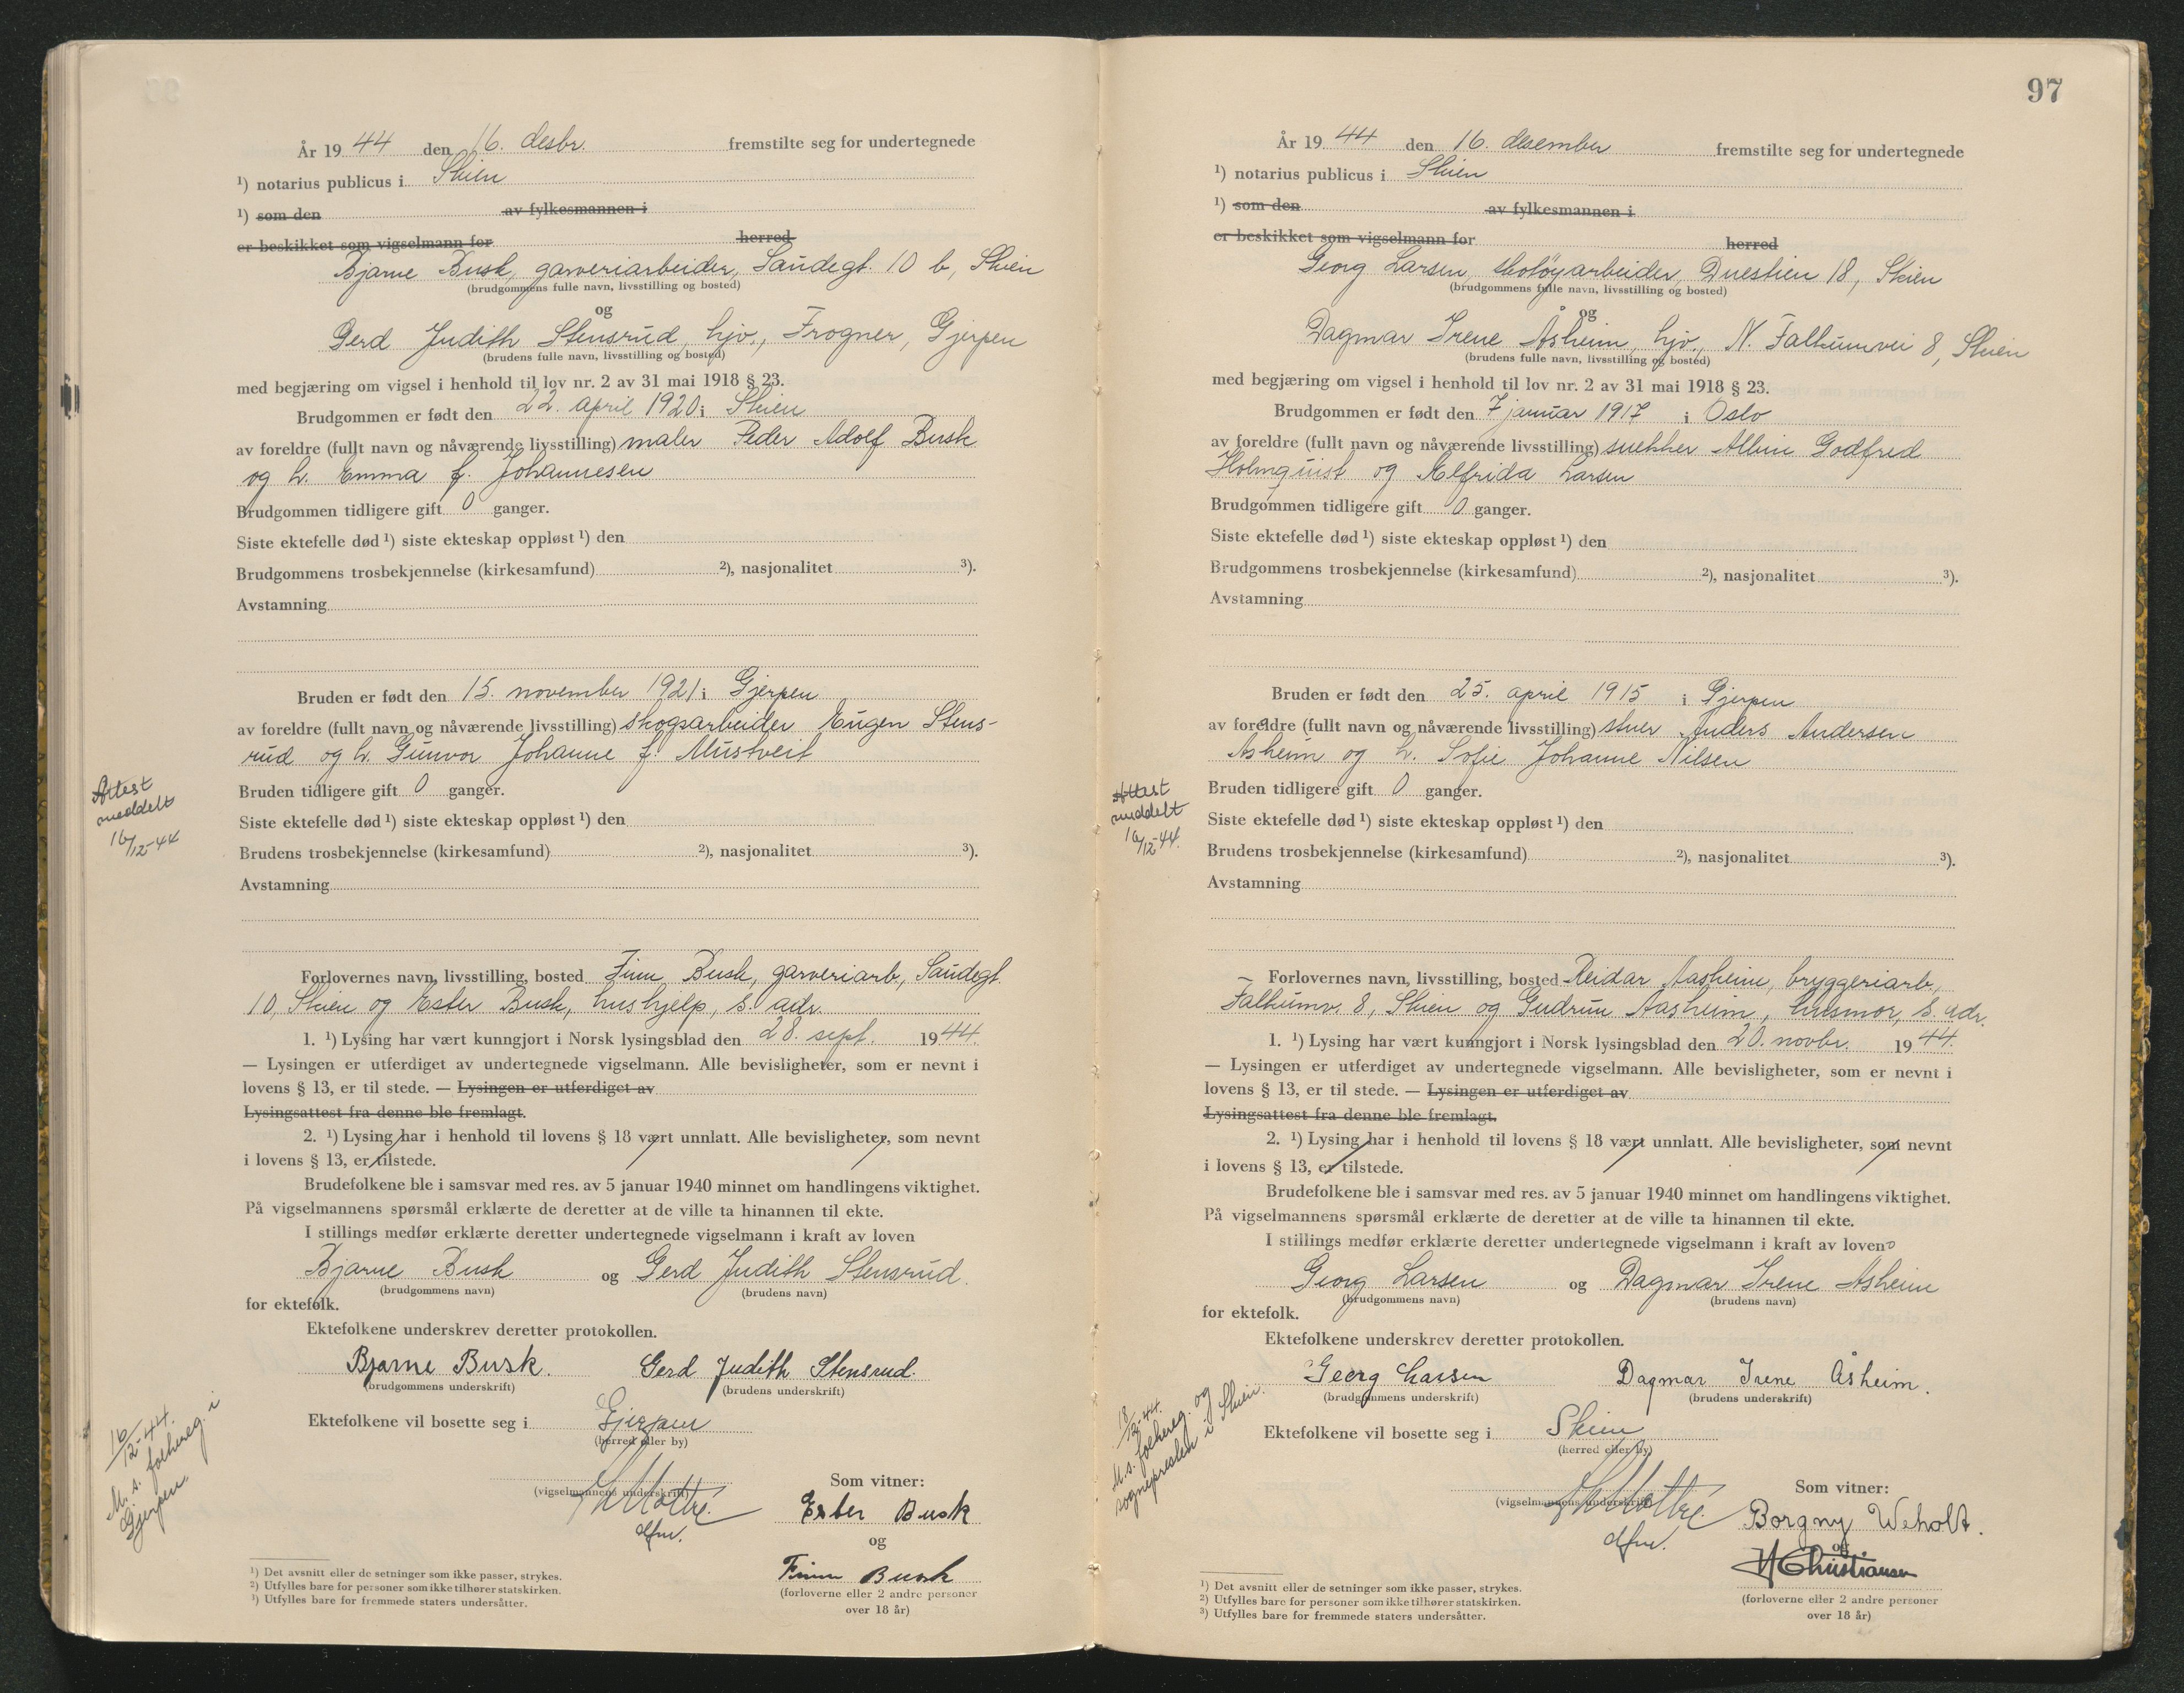 År 19 44 den 16. desbr. fremstilte seg for undertegnede
¹) notarius publicus i Skien
¹) som den av fylkesmannen i
er beskikket som vigselmann for herred
Bjarne Busk, garveriarbeider, Saudegt. 10 b, Skien
(brudgommens fulle navn, livsstilling og bosted)
og
Gerd Judith Stensrud, hjv., Frogner, Gjerpen
(brudens fulle navn, livsstilling og bosted)
med begjæring om vigsel i henhold til lov nr. 2 av 31 mai 1918 § 23.
Brudgommen er født den 22. april 1920 i Skien
av foreldre (fullt navn og nåværende livsstilling) maler Peder Adolf Busk
og h. Emma f. Johannesen
Brudgommen tidligere gift 0 ganger.
Siste ektefelle død ¹) siste ekteskap oppløst ¹) den
Brudgommens trosbekjennelse (kirkesamfund) ²), nasjonalitet ³).
Avstamning
Bruden er født den 15. november 1921 i Gjerpen
av foreldre (fullt navn og nåværende livsstilling) skogsarbeider Eugen Stens-
rud og h. Gunvor Johanne f. Mustveit
Attest
meddelt
16/12-44
Bruden tidligere gift 0 ganger.
Siste ektefelle død ¹) siste ekteskap oppløst ¹) den
Brudens trosbekjennelse (kirkesamfund) ²), nasjonalitet ³).
Avstamning
Forlovernes navn, livsstilling, bosted Finn Busk, garveriarb., Saudegt.
10, Skien og Ester Busk, hushjelp, s. adr.
1. ¹) Lysing har vært kunngjort i Norsk lysingsblad den 28. sept. 19 44.
— Lysingen er utferdiget av undertegnede vigselmann. Alle bevisligheter, som er nevnt i
lovens § 13, er til stede. — Lysingen er utferdiget av
Lysingsattest fra denne ble fremlagt.
2. ¹) Lysing har i henhold til lovens § 18 vært unnlatt. Alle bevisligheter, som nevnt
i lovens § 13, er tilstede.
Brudefolkene ble i samsvar med res. av 5 januar 1940 minnet om handlingens viktighet.
På vigselmannens spørsmål erklærte de deretter at de ville ta hinannen til ekte.
I stillings medfør erklærte deretter undertegnede vigselmann i kraft av loven
Bjarne Busk og Gerd Judith Stensrud.
(brudgommens navn) (brudens navn)
for ektefolk.
Ektefolkene underskrev deretter protokollen.
Bjarne Busk. Gerd Judith Stensrud.
(brudgommens underskrift) (brudens underskrift)
Ektefolkene vil bosette seg i Gjerpen
(herred eller by)
16/12-44.
M. s. folkereg. i
Gjerpen
(vigselmannens underskrift)
dfm.
Som vitner:
Ester Busk
og
Finn Busk
(forloverne eller 2 andre personer
over 18 år)
¹) Det avsnitt eller de setninger som ikke passer, strykes.
²) Utfylles bare for personer som ikke tilhører statskirken.
³) Utfylles bare for fremmede staters undersåtter.
97
År 19 44 den 16. desember fremstilte seg for undertegnede
¹) notarius publicus i Skien
¹) som den av fylkesmannen i
er beskikket som vigselmann for herred
Georg Larsen, skotøyarbeider, Duestien 18, Skien
(brudgommens fulle navn, livsstilling og bosted)
og
Dagmar Irene Åsheim, hjv., N. Falkumvei 8, Skien
(brudens fulle navn, livsstilling og bosted)
med begjæring om vigsel i henhold til lov nr. 2 av 31 mai 1918 § 23.
Brudgommen er født den 7 januar 1917 i Oslo
av foreldre (fullt navn og nåværende livsstilling) snekker Albin Godfred
Holmquist og Alfrida Larsen
Brudgommen tidligere gift 0 ganger.
Siste ektefelle død ¹) siste ekteskap oppløst ¹) den
Brudgommens trosbekjennelse (kirkesamfund) ²), nasjonalitet ³).
Avstamning
Bruden er født den 25. april 1915 i Gjerpen
av foreldre (fullt navn og nåværende livsstilling) stuer Anders Andersen
Asheim og h. Sofie Johanne Nilsen
Attest
meddelt
16/12-44.
Bruden tidligere gift 0 ganger.
Siste ektefelle død ¹) siste ekteskap oppløst ¹) den
Brudens trosbekjennelse (kirkesamfund) ²), nasjonalitet ³).
Avstamning
Forlovernes navn, livsstilling, bosted Reidar Aasheim, bryggeriarb.,
Falkumv. 8, Skien og Gudrun Aasheim, husmor, s. adr.
1. ¹) Lysing har vært kunngjort i Norsk lysingsblad den 20. novbr. 19 44.
— Lysingen er utferdiget av undertegnede vigselmann. Alle bevisligheter, som er nevnt i
lovens § 13, er til stede. — Lysingen er utferdiget av
Lysingsattest fra denne ble fremlagt.
2. ¹) Lysing har i henhold til lovens § 18 vært unnlatt. Alle bevisligheter, som nevnt
i lovens § 13, er tilstede.
Brudefolkene ble i samsvar med res. av 5 januar 1940 minnet om handlingens viktighet.
På vigselmannens spørsmål erklærte de deretter at de ville ta hinannen til ekte.
I stillings medfør erklærte deretter undertegnede vigselmann i kraft av loven
Georg Larsen og Dagmar Irene Åsheim
(brudgommens navn) (brudens navn)
for ektefolk.
Ektefolkene underskrev deretter protokollen.
Georg Larsen Dagmar Irene Åsheim.
(brudgommens underskrift) (brudens underskrift)
Ektefolkene vil bosette seg i Skien
(herred eller by)
18/12-44.
M.s. folkereg. og
sognepresten i Skien.
(vigselmannens underskrift)
dfm.
Som vitner:
Borgny Weholt.
og
H Christiansen
(forloverne eller 2 andre personer
over 18 år)
¹) Det avsnitt eller de setninger som ikke passer, strykes.
²) Utfylles bare for personer som ikke tilhører statskirken.
³) Utfylles bare for fremmede staters undersåtter.